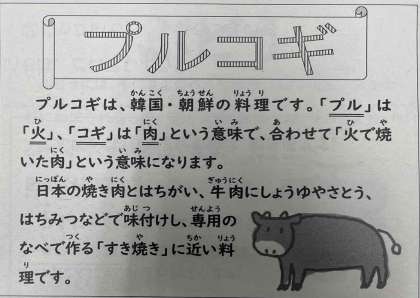 プルコギ
プルコギは、韓国・朝鮮の料理です。「プル」は
「火」、「コギ」は「肉」という意味で、合わせて「火で焼
いた肉」という意味になります。
日本の焼き肉とはちがい、牛肉にしょうゆやさとう、
はちみつなどで味付けし、専用の
なべで作る「すき焼き」に近い料
理です。